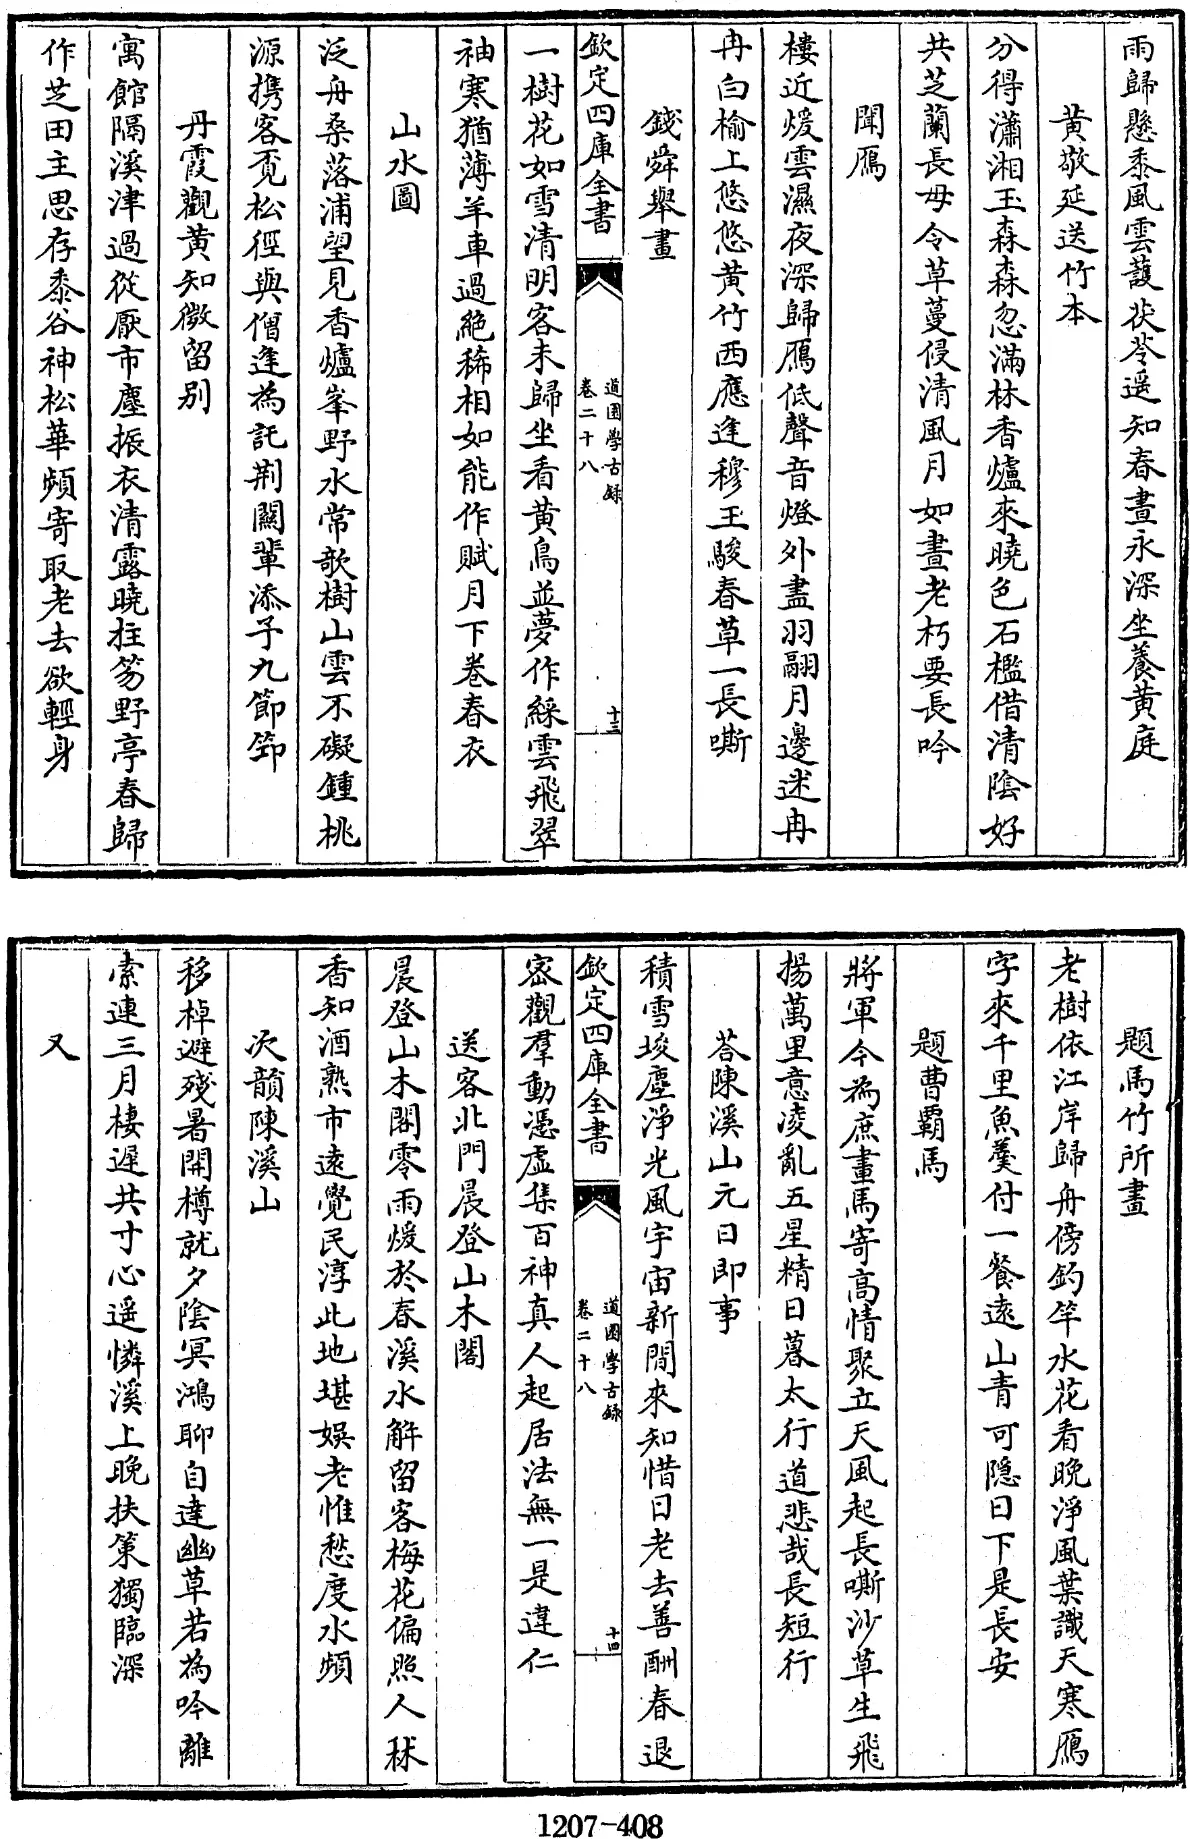 雨歸懸黍風雲護茯苓遥知春晝永深坐養黄庭
黄敬延送竹本
分得瀟湘玉森森忽滿林香爐來曉色石檻借清陰好
共芝蘭長毋令草蔓侵清風月如晝老朽要長吟
聞鴈
樓近煖雲濕夜深歸鴈低聲音燈外盡羽翮月邊迷冉
冉白榆上悠悠黄竹西應逢穆王駿春草一長嘶
錢舜舉畫
欽定四庫全書
道園學古録
卷二十八
十三
一樹花如雪清明客未歸坐看黄鳥並夢作綵雲飛翠
袖寒猶薄羊車過絶稀相如能作賦月下卷春衣
山水圖
泛舟桑落浦望見香爐峯野水常歌樹山雲不礙鍾桃
源携客覓松徑與僧逢為託荆關輩添予九節笻
丹霞觀黄知微留别
寓館隔溪津過從厭市塵振衣清露曉拄笏野亭春歸
作芝田主思存黍谷神松華頻寄取老去欲輕身
題馬竹所畫
老樹依江岸歸舟傍釣竿水花看晚淨風葉識天寒鴈
字來千里魚羮付一餐遠山青可隱日下是長安
題曹霸馬
將軍今為庶畫馬寄高情聚立天風起長嘶沙草生飛
揚萬里意凌亂五星精日暮太行道悲哉長短行
荅陳溪山元日即事
積雪埈塵淨光風宇宙新閒來知惜日老去善酬春退
欽定四庫全書
道園學古録
卷二十八
十四
宻觀羣動憑虚集百神真人起居法無一是違仁
送客北門晨登山木閣
晨登山木閣零雨煖於春溪水解留客梅花偏照人秫
香知酒熟市遠覺民淳此地堪娯老惟愁度水頻
次韻陳溪山
移棹避殘暑開樽就夕陰冥鴻聊自達幽草若為吟離
索連三月棲遲共寸心遥憐溪上晚扶策獨臨深
又
1207-408